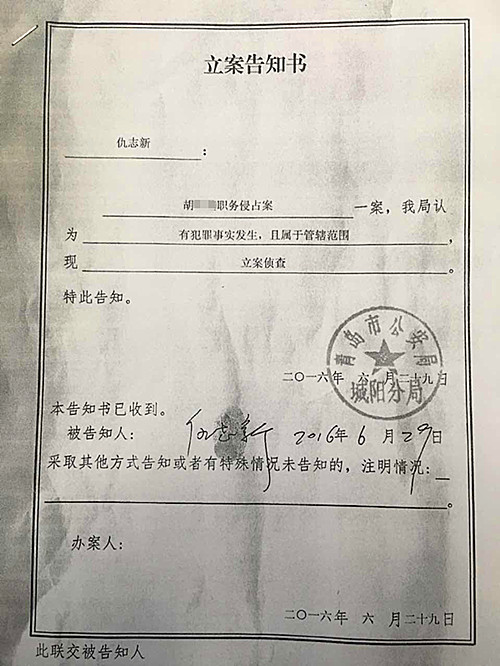 立案告知书
仇志新:
胡 职务侵占案一案，我局认
为有犯罪事实发生，且属于管辖范围，
现立案侦查。
特此告知。
青岛市公安局
城阳分局
二〇一六年 六 月二十九日
本告知书已收到。
被告知人： 仇志新 2016年6月29日
采取其他方式告知或者有特殊情况未告知的，注明情况：
。
办案人：
二〇一六年 六 月二十九日
此联交被告知人